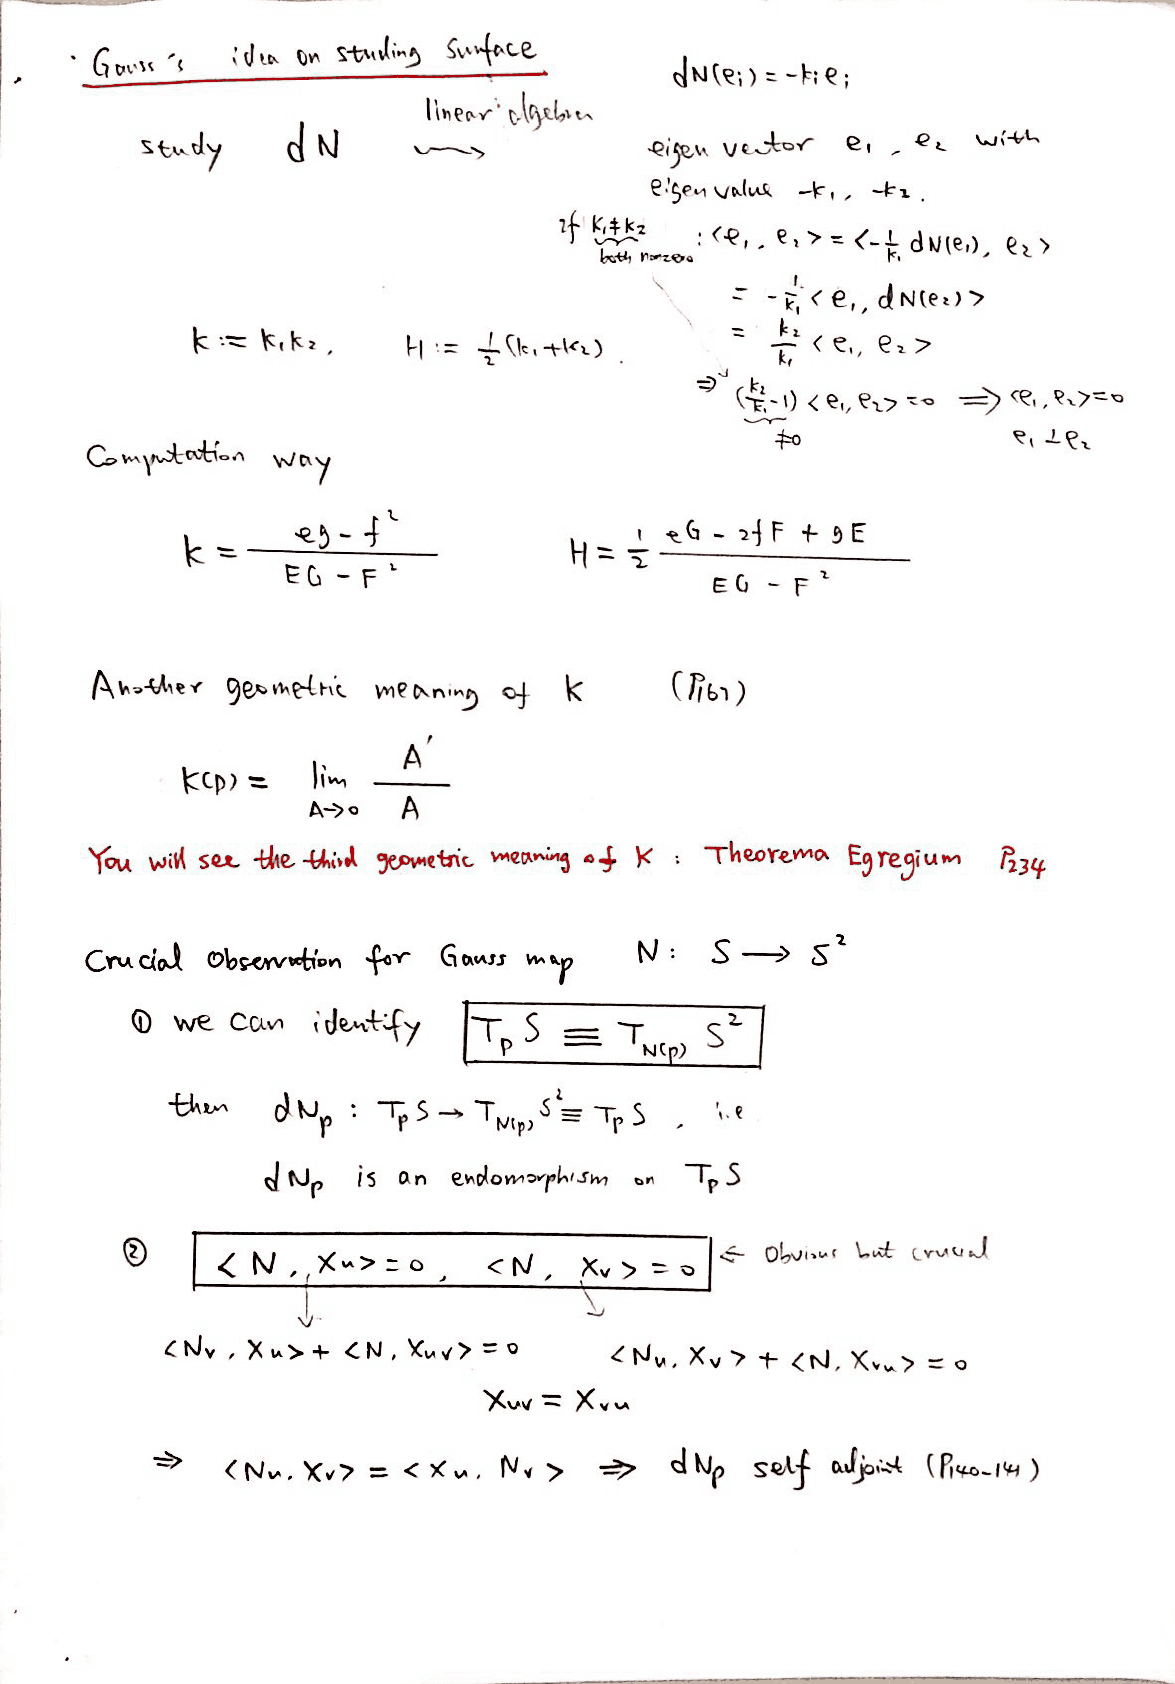 · Gauss's idea on studing surface
study dN ⇝ linear algebra
dN(ei) = -ki ei
eigen vector e1, e2 with
eigen value -k1, -k2.
if k1≠k2 : <e1, e2> = <-1/k1 dN(e1), e2>
both nonzero
= -1/k1 <e1, dN(e2)>
= k2/k1 <e1, e2>
⇒ (k2/k1 - 1) <e1, e2> = 0 ⇒ <e1, e2> = 0
≠0 e1 ⊥ e2
K := k1k2, H := 1/2 (k1+k2).
Computation way
K = (eg - f²)/(EG - F²) H = 1/2 (eG - 2fF + gE)/(EG - F²)
Another geometric meaning of K (P167)
K(p) = lim A→0 A'/A
You will see the third geometric meaning of K : Theorema Egregium P234
Crucial Observation for Gauss map N: S → S²
① we can identify TpS ≡ TN(p) S²
then dNp : TpS → TN(p) S² ≡ TpS, i.e
dNp is an endomorphism on TpS
② <N, Xu> = 0, <N, Xv> = 0 ⇐ Obvious but crucial
<Nv, Xu> + <N, Xuv> = 0 <Nu, Xv> + <N, Xvu> = 0
Xuv = Xvu
⇒ <Nu, Xv> = <Xu, Nv> ⇒ dNp self adjoint (P140-141)